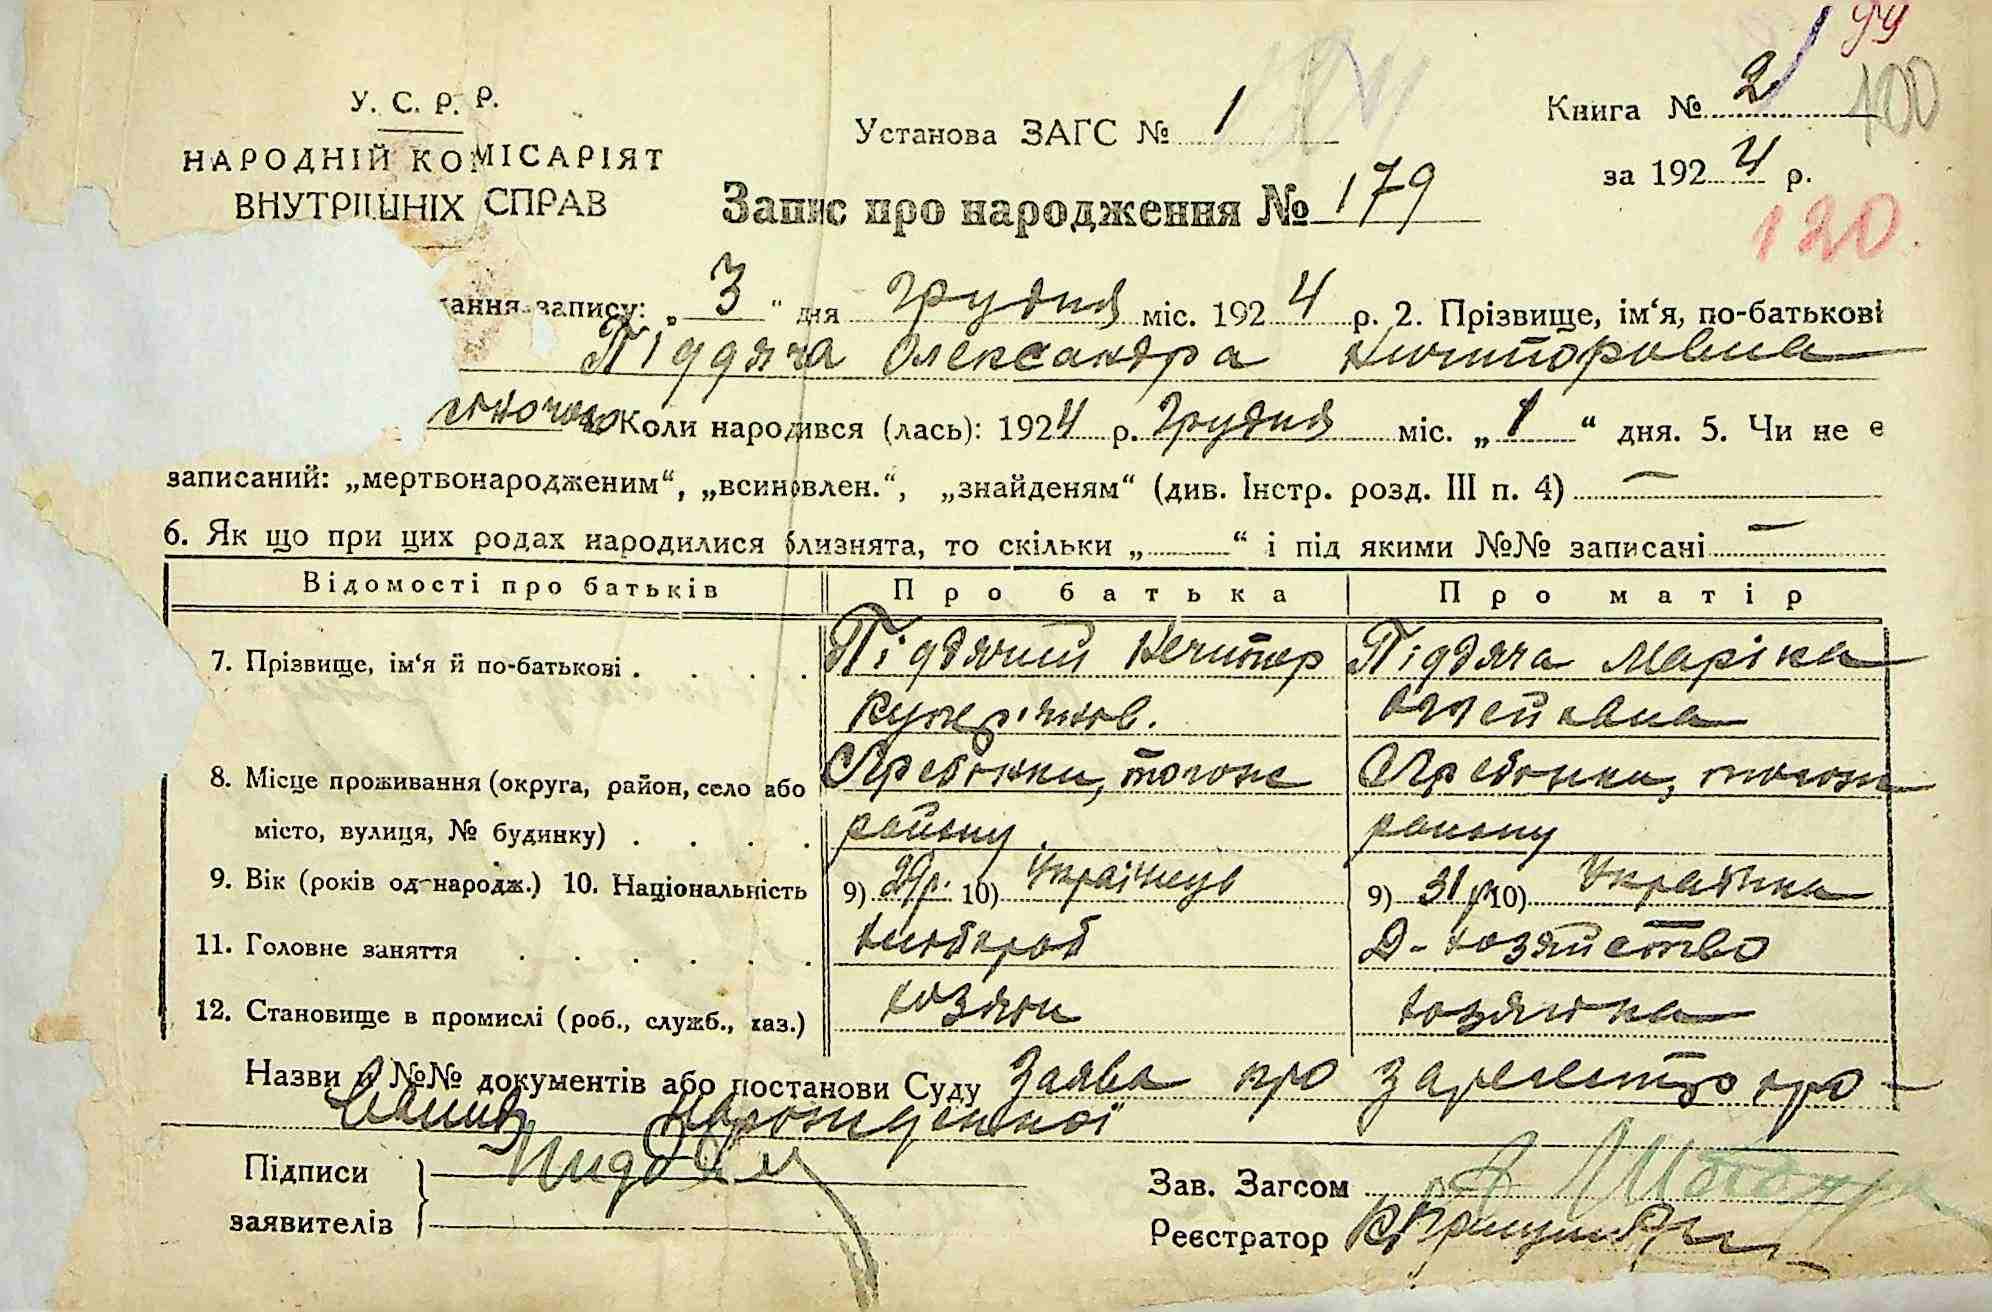 99
У. С. Р. Р.
НАРОДНІЙ КОМІСАРІЯТ
ВНУТРІШНІХ СПРАВ
Установа ЗАГС № 1
Книга № 2
100
за 1924 р.
Запис про народження № 179
120.
ання запису: „3“ дня Грудня міс. 1924 р. 2. Прізвище, ім‘я, по-батькові
Піддяча Олександра Ничипоровна
Коли народився (лась): 1924 р. Грудня міс. „1“ дня. 5. Чи не є
записаний: „мертвонародженим“, „всиновлен.“, „знайденям“ (див. Інстр. розд. III п. 4) —
6. Як що при цих родах народилися близнята, то скільки „ “ і під якими №№ записані —
Відомості про батьків Про батька Про матір
7. Прізвище, ім‘я й по-батькові . . . . Піддячий Ничипор Піддяча Маріка
8. Місце проживання (округа, район, село або Гребінки, тогож Гребінки, тогож
місто, вулиця, № будинку) . . . . району району
9. Вік (років од народж.) 10. Національність 9) 29 р. 10) Українець 9) 31 р. 10) Українка
11. Головне заняття . . . . . . хлібороб Д-хозяйство
12. Становище в промислі (роб., служб., хаз.) хозяїн хозяїнка
Назви й №№ документів або постанови Суду Заява про зареєстро
вання
Підписи
заявителів
Зав. Загсом
Реєстратор